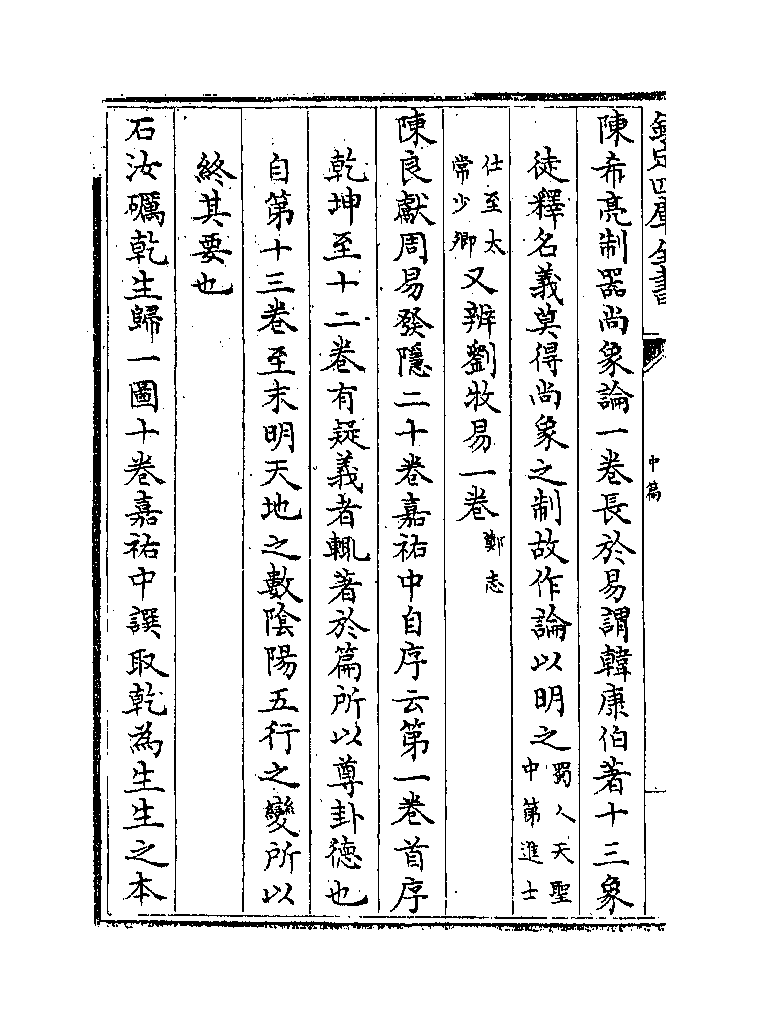 欽定四庫全書
中篇
陳希亮制器尚象論一卷長於易謂韓康伯著十三象
徒釋名義莫得尚象之制故作論以明之蜀人天聖中第進士
仕至太常少卿又辨劉牧易一卷鄭志
陳良獻周易發隱二十卷嘉祐中自序云第一卷首序
乾坤至十二卷有疑義者輒著於篇所以尊卦德也
自第十三卷至末明天地之數陰陽五行之變所以
終其要也
石汝礪乾生歸一圖十卷嘉祐中譔取乾為生生之本